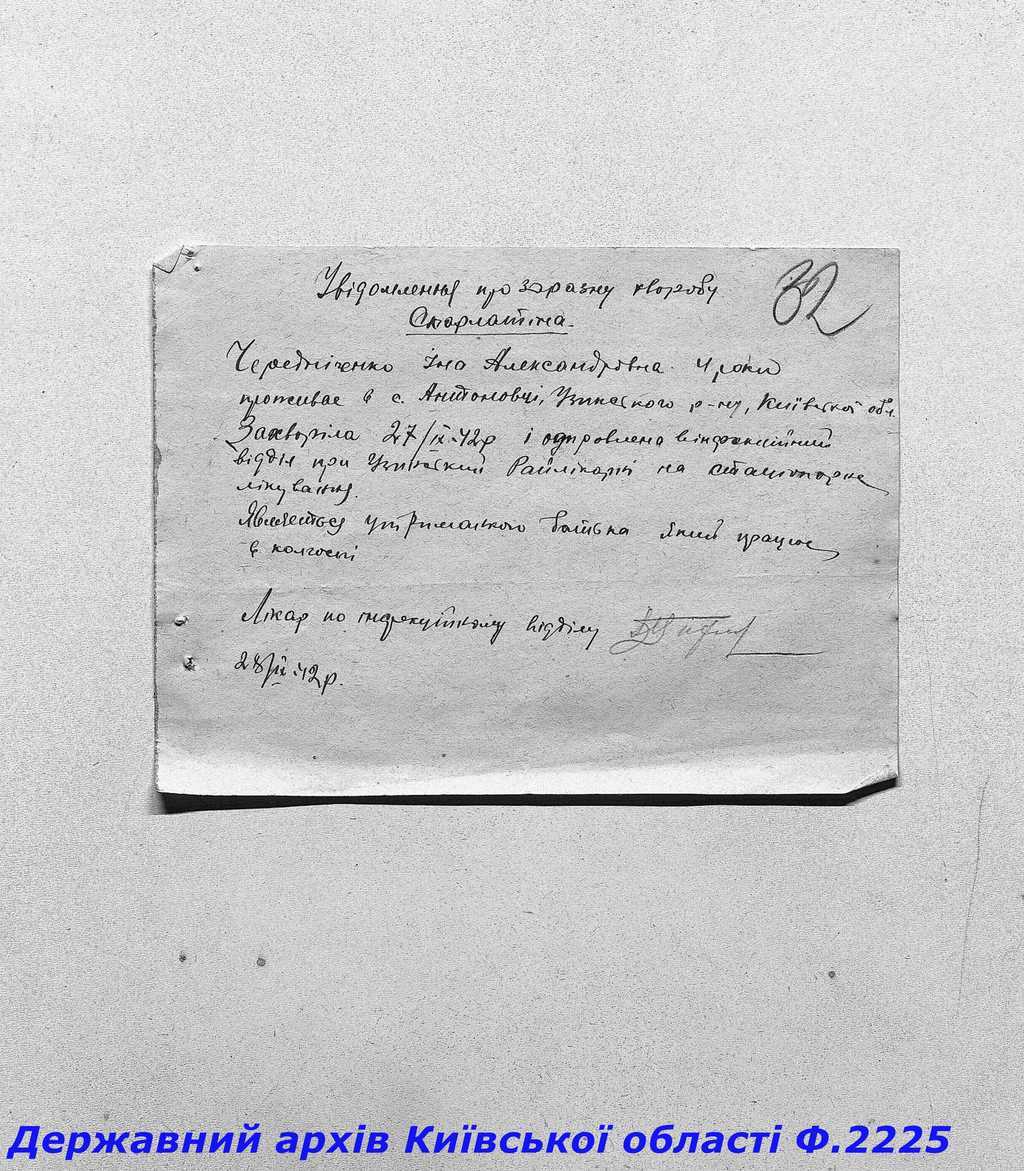 Увідомлення про заразну хворобу
32
Скарлатіна.
Чередніченко Іна Александровна. 4 роки
проживає в с. Антоновці, Узинського р-ну, Київської обл.
Захворіла 27/IX-42р і одправлена в інфекційний
відділ при Узинський Райлікарні на стаціонарне
лікування.
Являється утриманського батька який працює
в колгоспі
Лікар по інфекційному відділу
28/IX-42р.
Державний архів Київської області Ф.2225